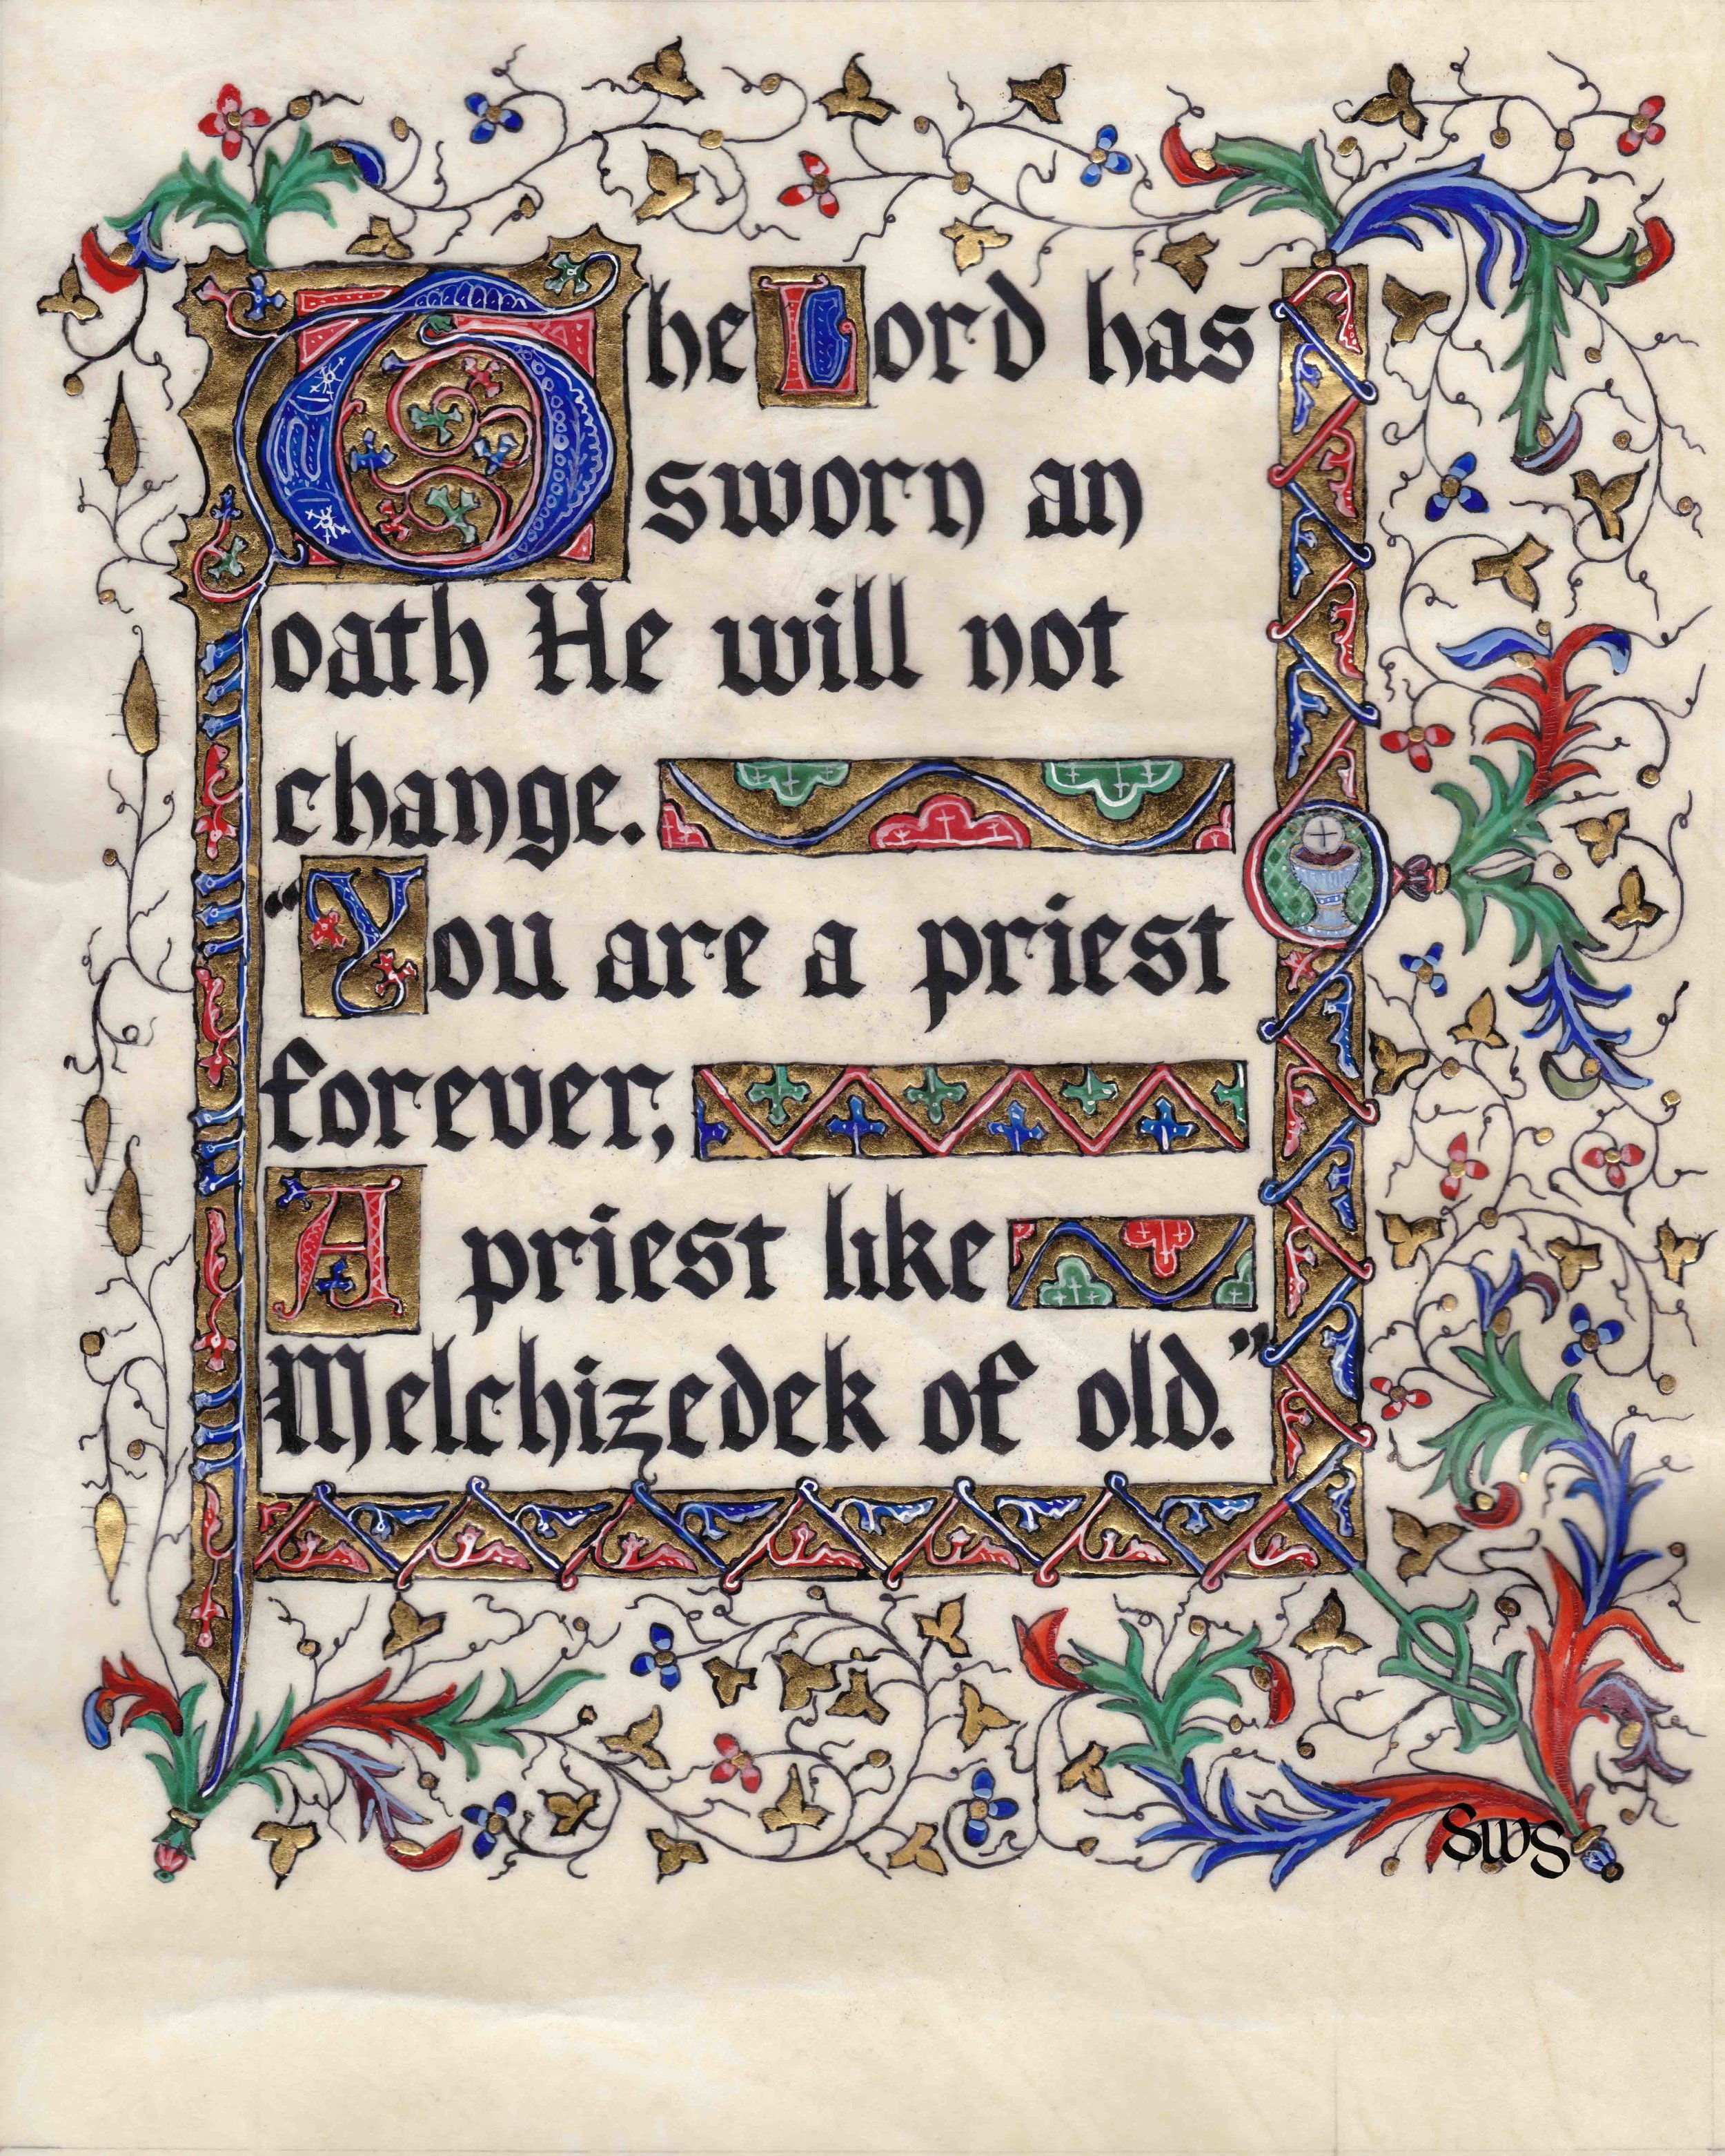 The Lord has
sworn an
oath He will not
change.
“You are a priest
forever,
A priest like
Melchizedek of old.”
SWS